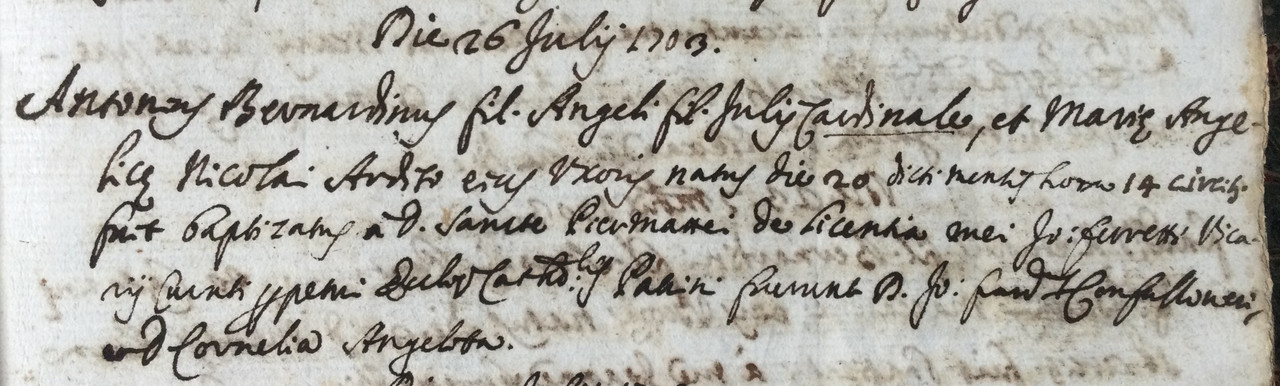 Die 26 Julij 1703.
Antonius Bernardinus fil. Angeli fil. Julij Cardinale, et Marię Ange-
licę Nicolai Ardito eius Uxoris natus die 20 dicti mensis hora 14 circit.
fuit baptizatus a D. Sancte Piermattei de licentia mei Jo: ferretti Vica-
rij Curati Ecclię Cathd.lis Patrini fuerunt D. Jo: Confalloneri,
et D Cornelia Angelota.